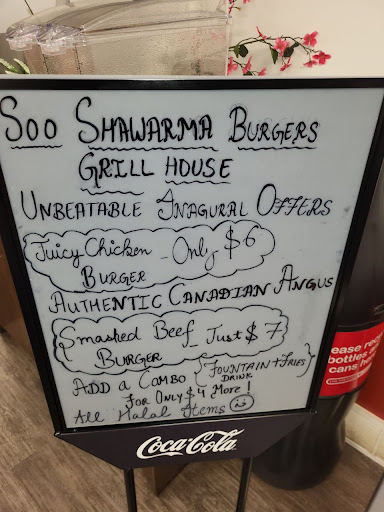 SOO SHAWARMA BURGERS
GRILL HOUSE
UNBEATABLE INAGURAL OFFERS
Juicy Chicken - Only $6
BURGER
AUTHENTIC CANADIAN ANGUS
Smashed Beef Just $7
BURGER
ADD a COMBO {FOUNTAIN + FRIES}
DRINK
FOR ONLY $4 MORE!
All Halal Items
Coca-Cola
ease
bottles
cans